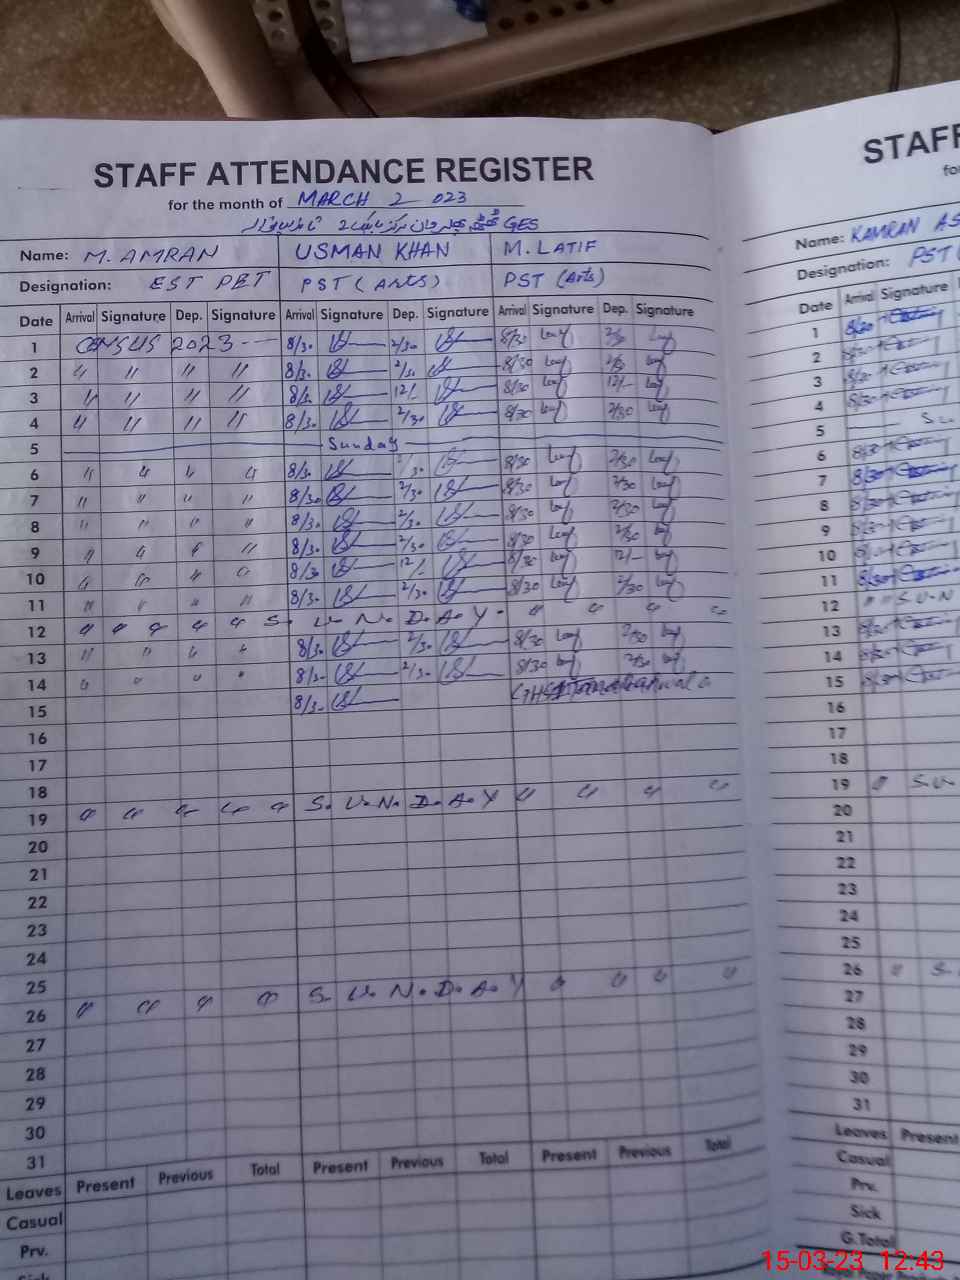 STAFF ATTENDANCE REGISTER
for the month of MARCH 2023
GES
Name: M. AMRAN USMAN KHAN M. LATIF
Designation: EST PET PST (Arts) PST (Arts)
Date Arrival Signature Dep. Signature Arrival Signature Dep. Signature Arrival Signature Dep. Signature
1 CENSUS 2023 8/30 2/30 8/30 2/30
2 〃 〃 〃 〃 8/30 2/30 8/30 2/30
3 〃 〃 〃 〃 8/30 12/- 8/30 12/-
4 〃 〃 〃 〃 8/30 2/30 8/30 2/30
5 Sunday
6 〃 〃 〃 〃 8/30 2/30 8/30 2/30
7 〃 〃 〃 〃 8/30 2/30 8/30 2/30
8 〃 〃 〃 〃 8/30 2/30 8/30 2/30
9 〃 〃 〃 〃 8/30 2/30 8/30 2/30
10 〃 〃 〃 〃 8/30 12/- 8/30 12/-
11 〃 〃 〃 〃 8/30 2/30 8/30 2/30
12 〃 〃 〃 〃 〃 S. U. N. D. A. Y. 〃 〃 〃 〃
13 〃 〃 〃 〃 8/30 2/30 8/30 2/30
14 〃 〃 〃 〃 8/30 2/30 8/30 2/30
15 8/30
16
17
18
19 〃 〃 〃 〃 〃 S. U. N. D. A. Y 〃 〃 〃 〃
20
21
22
23
24
25
26 〃 〃 〃 〃 S. U. N. D. A. Y 〃 〃 〃 〃
27
28
29
30
31
Leaves Present Previous Total Present Previous Total Present Previous Total
Casual
Prv.
Sick
STAFF
for
Name: KAMRAN AS
Designation: PST (
Date Arrival Signature
1 8/30
2 8/30
3 8/30
4 8/30
5 Su
6 8/30
7 8/30
8 8/30
9 8/30
10 8/30
11 8/30
12 〃 〃 S. U. N
13 8/30
14 8/30
15 8/30
16
17
18
19 〃 S. U.
20
21
22
23
24
25
26 〃 S.
27
28
29
30
31
Leaves Present
Casual
Prv.
Sick
G.Total
15-03-23 12:43